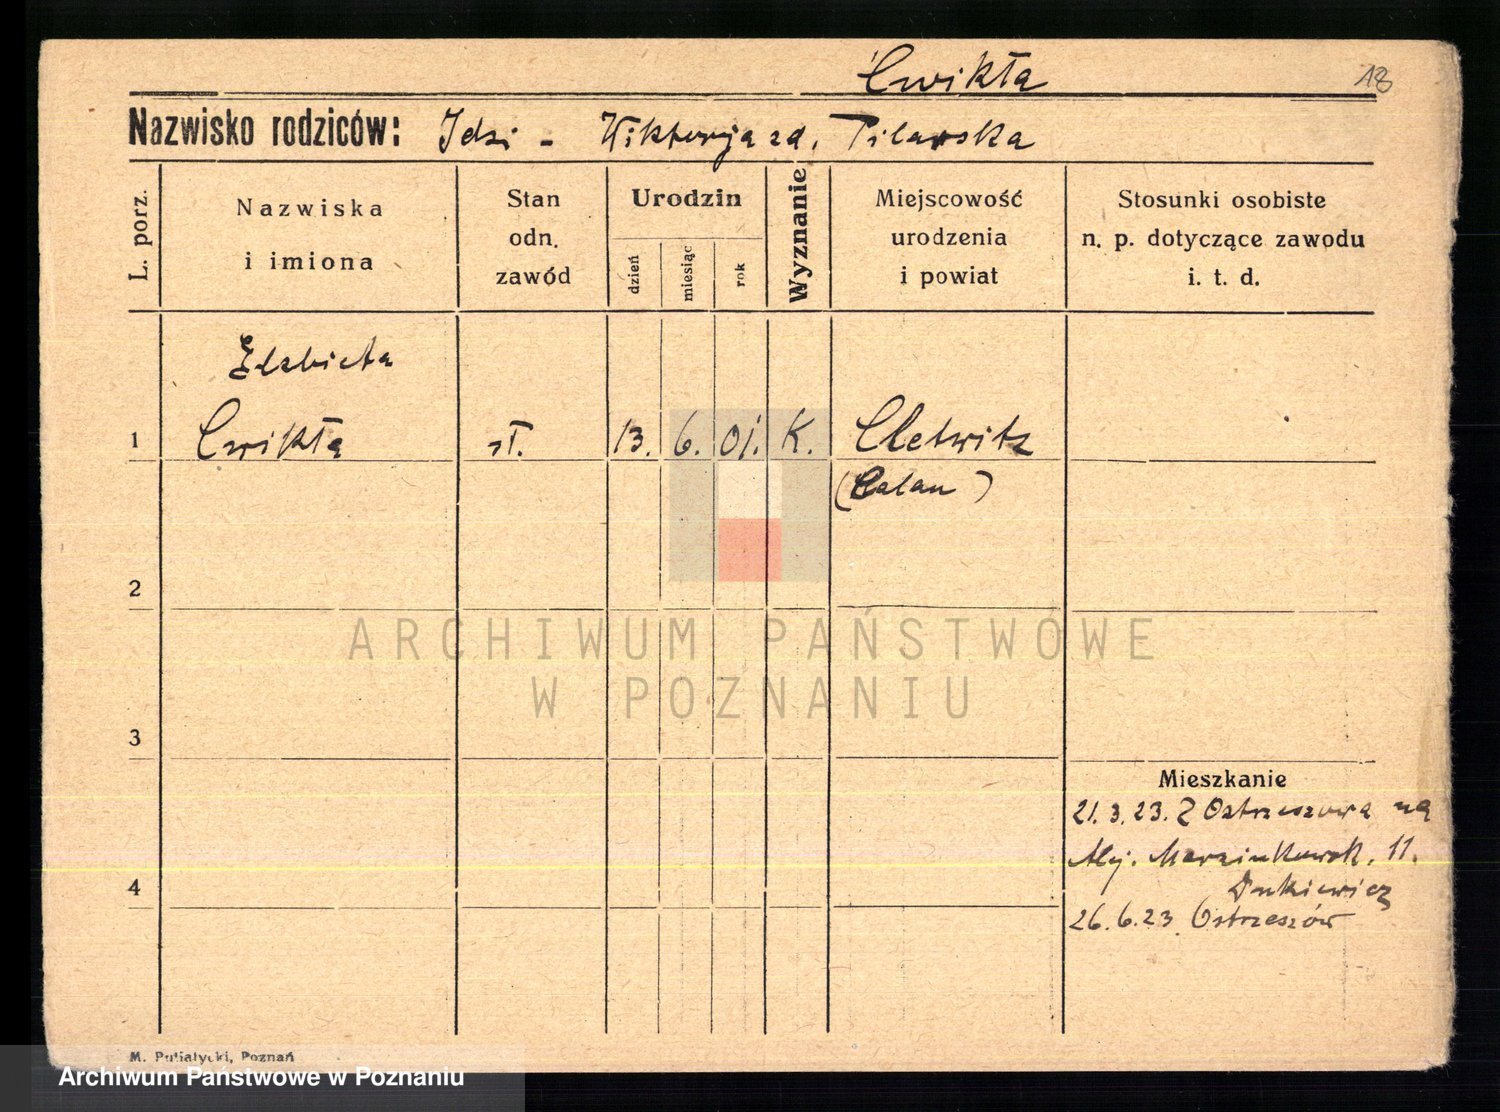 Ćwikła 18
Nazwisko rodziców: Idzi - Wiktorja zd. Pilarska
L. porz.
Nazwiska
i imiona
Stan
odn.
zawód
Urodzin
dzień
miesiąc
rok
Wyznanie
Miejscowość
urodzenia
i powiat
Stosunki osobiste
n. p. dotyczące zawodu
i. t. d.
Elzbieta
1 Cwikła sł. 13. 6. 01. K. Cletwitz
(Calau)
2
ARCHIWUM PAŃSTWOWE
W POZNANIU
3
Mieszkanie
21. 3. 23. Z Ostrzeszowa na
Alej. Marcinkowsk. 11.
4
26. 6. 23. Ostrzeszów
M. Putiatycki, Poznań
Archiwum Państwowe w Poznaniu